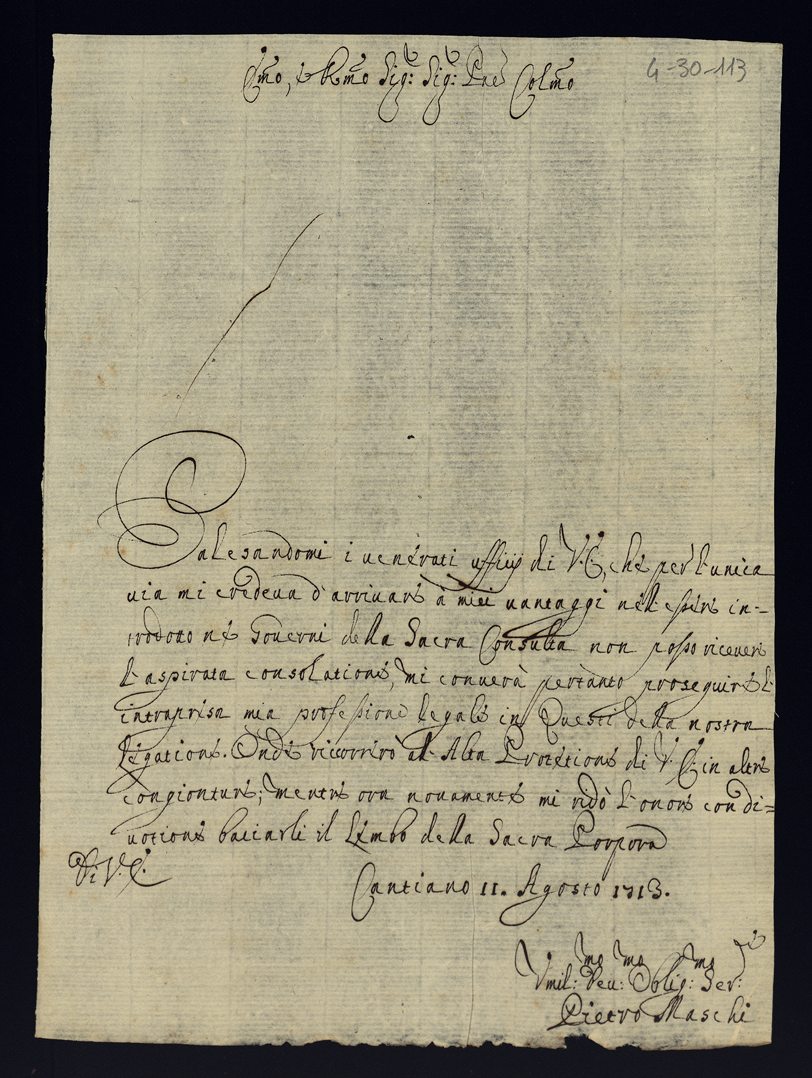 Emo, e Rmo Sig:re Sig:re Pne Colmo
4-30-113
Palesandomi i uenerati uffiij di V.E., che per l'unica
uia mi credeua d'arriuare à miei uantaggi nell'essere in=
trodotto ne Gouerni della Sacra Consulta non posso riceuere
l'aspirata consolatione, mi conuerà pertanto proseguire l'
intrapresa mia professione legale in Questi della nostra
legatione. Onde ricorrerò all'Alta Protetione di V.E. in altre
congionture; mentre ora nouamente mi redo l'onore con di=
uotione bacciarli il Lembo della Sacra Porpora
Di V.E.
Cantiano 11. Agosto 1713.
Vmil:mo Deu:mo Oblig:mo Ser:re
Pietro Maschi